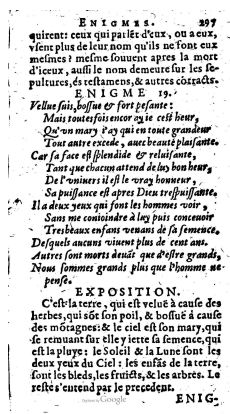 ENIGMES. 297
quirent: ceux qui parlẽt d'eux, ou a eux,
vsent plus de leur nom qu'ils ne font eux
mesmes? mesme souuent apres la mort
d'iceux, aussi le nom demeure sur les se-
pultures, és testamens, & autres cõtracts.
ENIGME 19.
Vellue suis, bossue & fort pesante:
Mais toutesfois encor ay ie cest heur,
Qu'vn mary i'ay qui en toute grandeur
Tout autre excede, auec beauté plaisante.
Car sa face est splendide & reluisante,
Tant que chacun attend de luy bon heur,
De l'vniuers il est le vray honneur,
Sa puissance est apres Dieu trespuissante.
Il a deux yeux qui font les hommes voir,
Sans me conioindre à luy puis conceuoir
Tresbeaux enfans venans de sa semence,
Desquels aucuns viuent plus de cent ans.
Autres sont morts deuãt que d'estre grands,
Nous sommes grands plus que l'homme ne
pense.
EXPOSITION.
C'est la terre, qui est veluë à cause des
herbes, qui sõt son poil, & bossuë à cause
des mõtagnes: & le ciel est son mary, qui
se remuant sur elle y iette sa semence, qui
est la pluye: le Soleil & la Lune sont les
deux yeux du Ciel: les enfãs de la terre,
sont les bleds, les fruicts, & les arbres. Le
reste s'entend par le precedent.
ENIG-
Digitized by Google